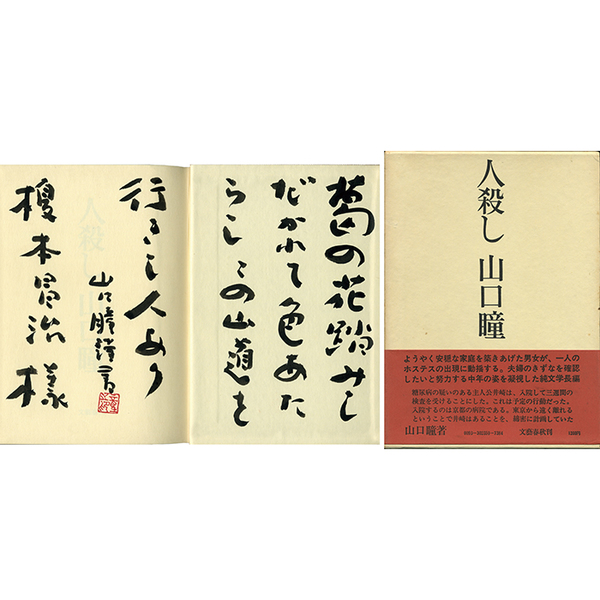 葛の花踏みし
だかれて色あた
らしこの山道を
行きし人あり
山口瞳
榎本昌治様
人殺し 山口瞳
ようやく安穏な家庭を築きあげた男女が、一人の
ホステスの出現に動揺する。夫婦のきずなを確認
したいと努力する中年の姿を凝視した純文学長編
糖尿病の疑いのある主人公井崎は、入院して三週間の
検査を受けることにした。これは予定の行動だった。
入院するのは京都の病院である。東京から遠く離れる
ということで井崎はあることを、綿密に計画していた
山口瞳著
文藝春秋刊